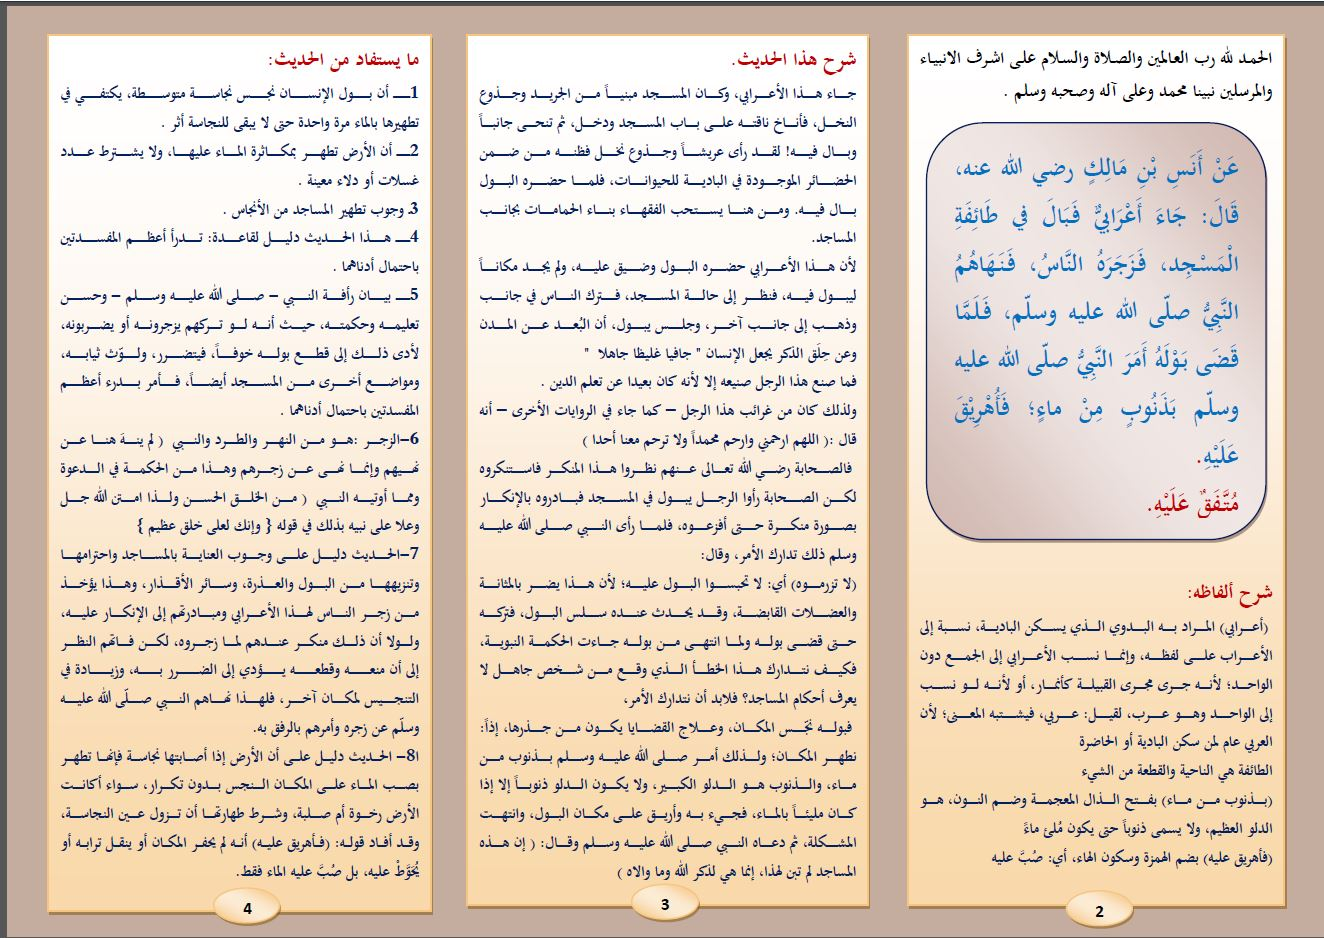 الحمد لله رب العالمين والصلاة والسلام على اشرف الانبياء
والمرسلين نبينا محمد وعلى آله وصحبه وسلم .
عَنْ أَنَسِ بْنِ مَالِكٍ رضي الله عنه،
قَالَ: جَاءَ أَعْرَابِيٌّ فَبَالَ فِي طَائِفَةِ
الْمَسْجِدِ، فَزَجَرَهُ النَّاسُ، فَنَهَاهُمُ
النَّبِيُّ صلّى الله عليه وسلّم، فَلَمَّا
قَضَى بَوْلَهُ أَمَرَ النَّبِيُّ صلّى الله عليه
وسلّم بَذَنُوبٍ مِنْ ماءٍ؛ فَأُهْرِيْقَ
عَلَيْهِ.
مُتَّفَقٌ عَلَيْهِ.
شرح ألفاظه:
(أعرابي) المراد به البدوي الذي يسكن البادية، نسبة إلى
الأعراب على لفظه، وإنما نسب الأعرابي إلى الجمع دون
الواحد؛ لأنه جرى مجرى القبيلة كأنمار، أو لأنه لو نسب
إلى الواحد وهو عرب، لقيل: عربي، فيشتبه المعنى؛ لأن
العربي عام لمن سكن البادية أو الحاضرة
الطائفة هي الناحية والقطعة من الشيء
(بذنوب من ماء) بفتح الذال المعجمة وضم النون، هو
الدلو العظيم، ولا يسمى ذنوباً حتى يكون مُلئ ماءً
(فأهريق عليه) بضم الهمزة وسكون الهاء، أي: صُبَّ عليه
2
شرح هذا الحديث.
جاء هذا الأعرابي، وكان المسجد مبنياً من الجريد وجذوع
النخل، فأناخ ناقته على باب المسجد ودخل، ثم تنحى جانباً
وبال فيه! لقد رأى عريشاً وجذوع نخل فظنه من ضمن
الحضائر الموجودة في البادية للحيوانات، فلما حضره البول
بال فيه. ومن هنا يستحب الفقهاء بناء الحمامات بجانب
المساجد.
لأن هذا الأعرابي حضره البول وضيق عليه، ولم يجد مكاناً
ليبول فيه، فنظر إلى حالة المسجد، فترك الناس في جانب
وذهب إلى جانب آخر، وجلس يبول، أن البُعد عن المدن
وعن حِلَق الذكر يجعل الإنسان " جافيا غليظا جاهلا "
فما صنع هذا الرجل صنيعه إلا لأنه كان بعيدا عن تعلم الدين .
ولذلك كان من غرائب هذا الرجل – كما جاء في الروايات الأخرى – أنه
قال :( اللهم ارحمني وارحم محمداً ولا ترحم معنا أحدا )
فالصحابة رضي الله تعالى عنهم نظروا هذا المنكر فاستنكروه
لكن الصحابة رأوا الرجل يبول في المسجد فبادروه بالإنكار
بصورة منكرة حتى أفزعوه، فلما رأى النبي صلى الله عليه
وسلم ذلك تدارك الأمر، وقال:
(لا تزرموه) أي: لا تحبسوا البول عليه؛ لأن هذا يضر بالمثانة
والعضلات القابضة، وقد يحدث عنده سلس البول، فتركه
حتى قضى بوله ولما انتهى من بوله جاءت الحكمة النبوية،
فكيف نتدارك هذا الخطأ الذي وقع من شخص جاهل لا
يعرف أحكام المساجد؟ فلابد أن نتدارك الأمر،
فبوله نجّس المكان، وعلاج القضايا يكون من جذرها، إذاً:
نطهر المكان؛ ولذلك أمر صلى الله عليه وسلم بذنوب من
ماء، والذنوب هو الدلو الكبير، ولا يكون الدلو ذنوباً إلا إذا
كان مليئاً بالماء، فجيء به وأريق على مكان البول، وانتهت
المشكلة، ثم دعاه النبي صلى الله عليه وسلم وقال: ( إن هذه
المساجد لم تبن لهذا، إنما هي لذكر الله وما والاه )
3
ما يستفاد من الحديث:
1ــ أن بول الإنسان نجس نجاسة متوسطة، يكتفي في
تطهيرها بالماء مرة واحدة حتى لا يبقى للنجاسة أثر .
2ــ أن الأرض تطهر بمكاثرة الماء عليها، ولا يشترط عدد
غسلات أو دلاء معينة .
3ـ وجوب تطهير المساجد من الأنجاس .
4ــ هذا الحديث دليل لقاعدة: تدرأ أعظم المفسدتين
باحتمال أدناهما .
5ــ بيان رأفة النبي – صلى الله عليه وسلم – وحسن
تعليمه وحكمته، حيث أنه لو تركهم يزجرونه أو يضربونه،
لأدى ذلك إلى قطع بوله خوفاً، فيتضرر، ولوّث ثيابه،
ومواضع أخرى من المسجد أيضاً، فأمر بدرء أعظم
المفسدتين باحتمال أدناهما .
6–الزجر :هو من النهر والطرد والنبي ( لم ينهَ هنا عن
نهيهم وإنما نهى عن زجرهم وهذا من الحكمة في الدعوة
ومما أوتيه النبي ( من الخلق الحسن ولذا امتن الله جل
وعلا على نبيه بذلك في قوله { وإنك لعلى خلق عظيم }
7–الحديث دليل على وجوب العناية بالمساجد واحترامها
وتنزيهها من البول والعذرة، وسائر الأقذار، وهذا يؤخذ
من زجر الناس لهذا الأعرابي ومبادرتهم إلى الإنكار عليه،
ولولا أن ذلك منكر عندهم لما زجروه، لكن فاتهم النظر
إلى أن منعه وقطعه يؤدي إلى الضرر به، وزيادة في
التنجيس لمكان آخر، فلهذا نهاهم النبي صلّى الله عليه
وسلّم عن زجره وأمرهم بالرفق به.
ا8– الحديث دليل على أن الأرض إذا أصابتها نجاسة فإنها تطهر
بصب الماء على المكان النجس بدون تكرار، سواء أكانت
الأرض رخوة أم صلبة، وشرط طهارتها أن تزول عين النجاسة،
وقد أفاد قوله: (فأهريق عليه) أنه لم يحفر المكان أو ينقل ترابه أو
يُحَوَّطْ عليه، بل صُبَّ عليه الماء فقط.
4